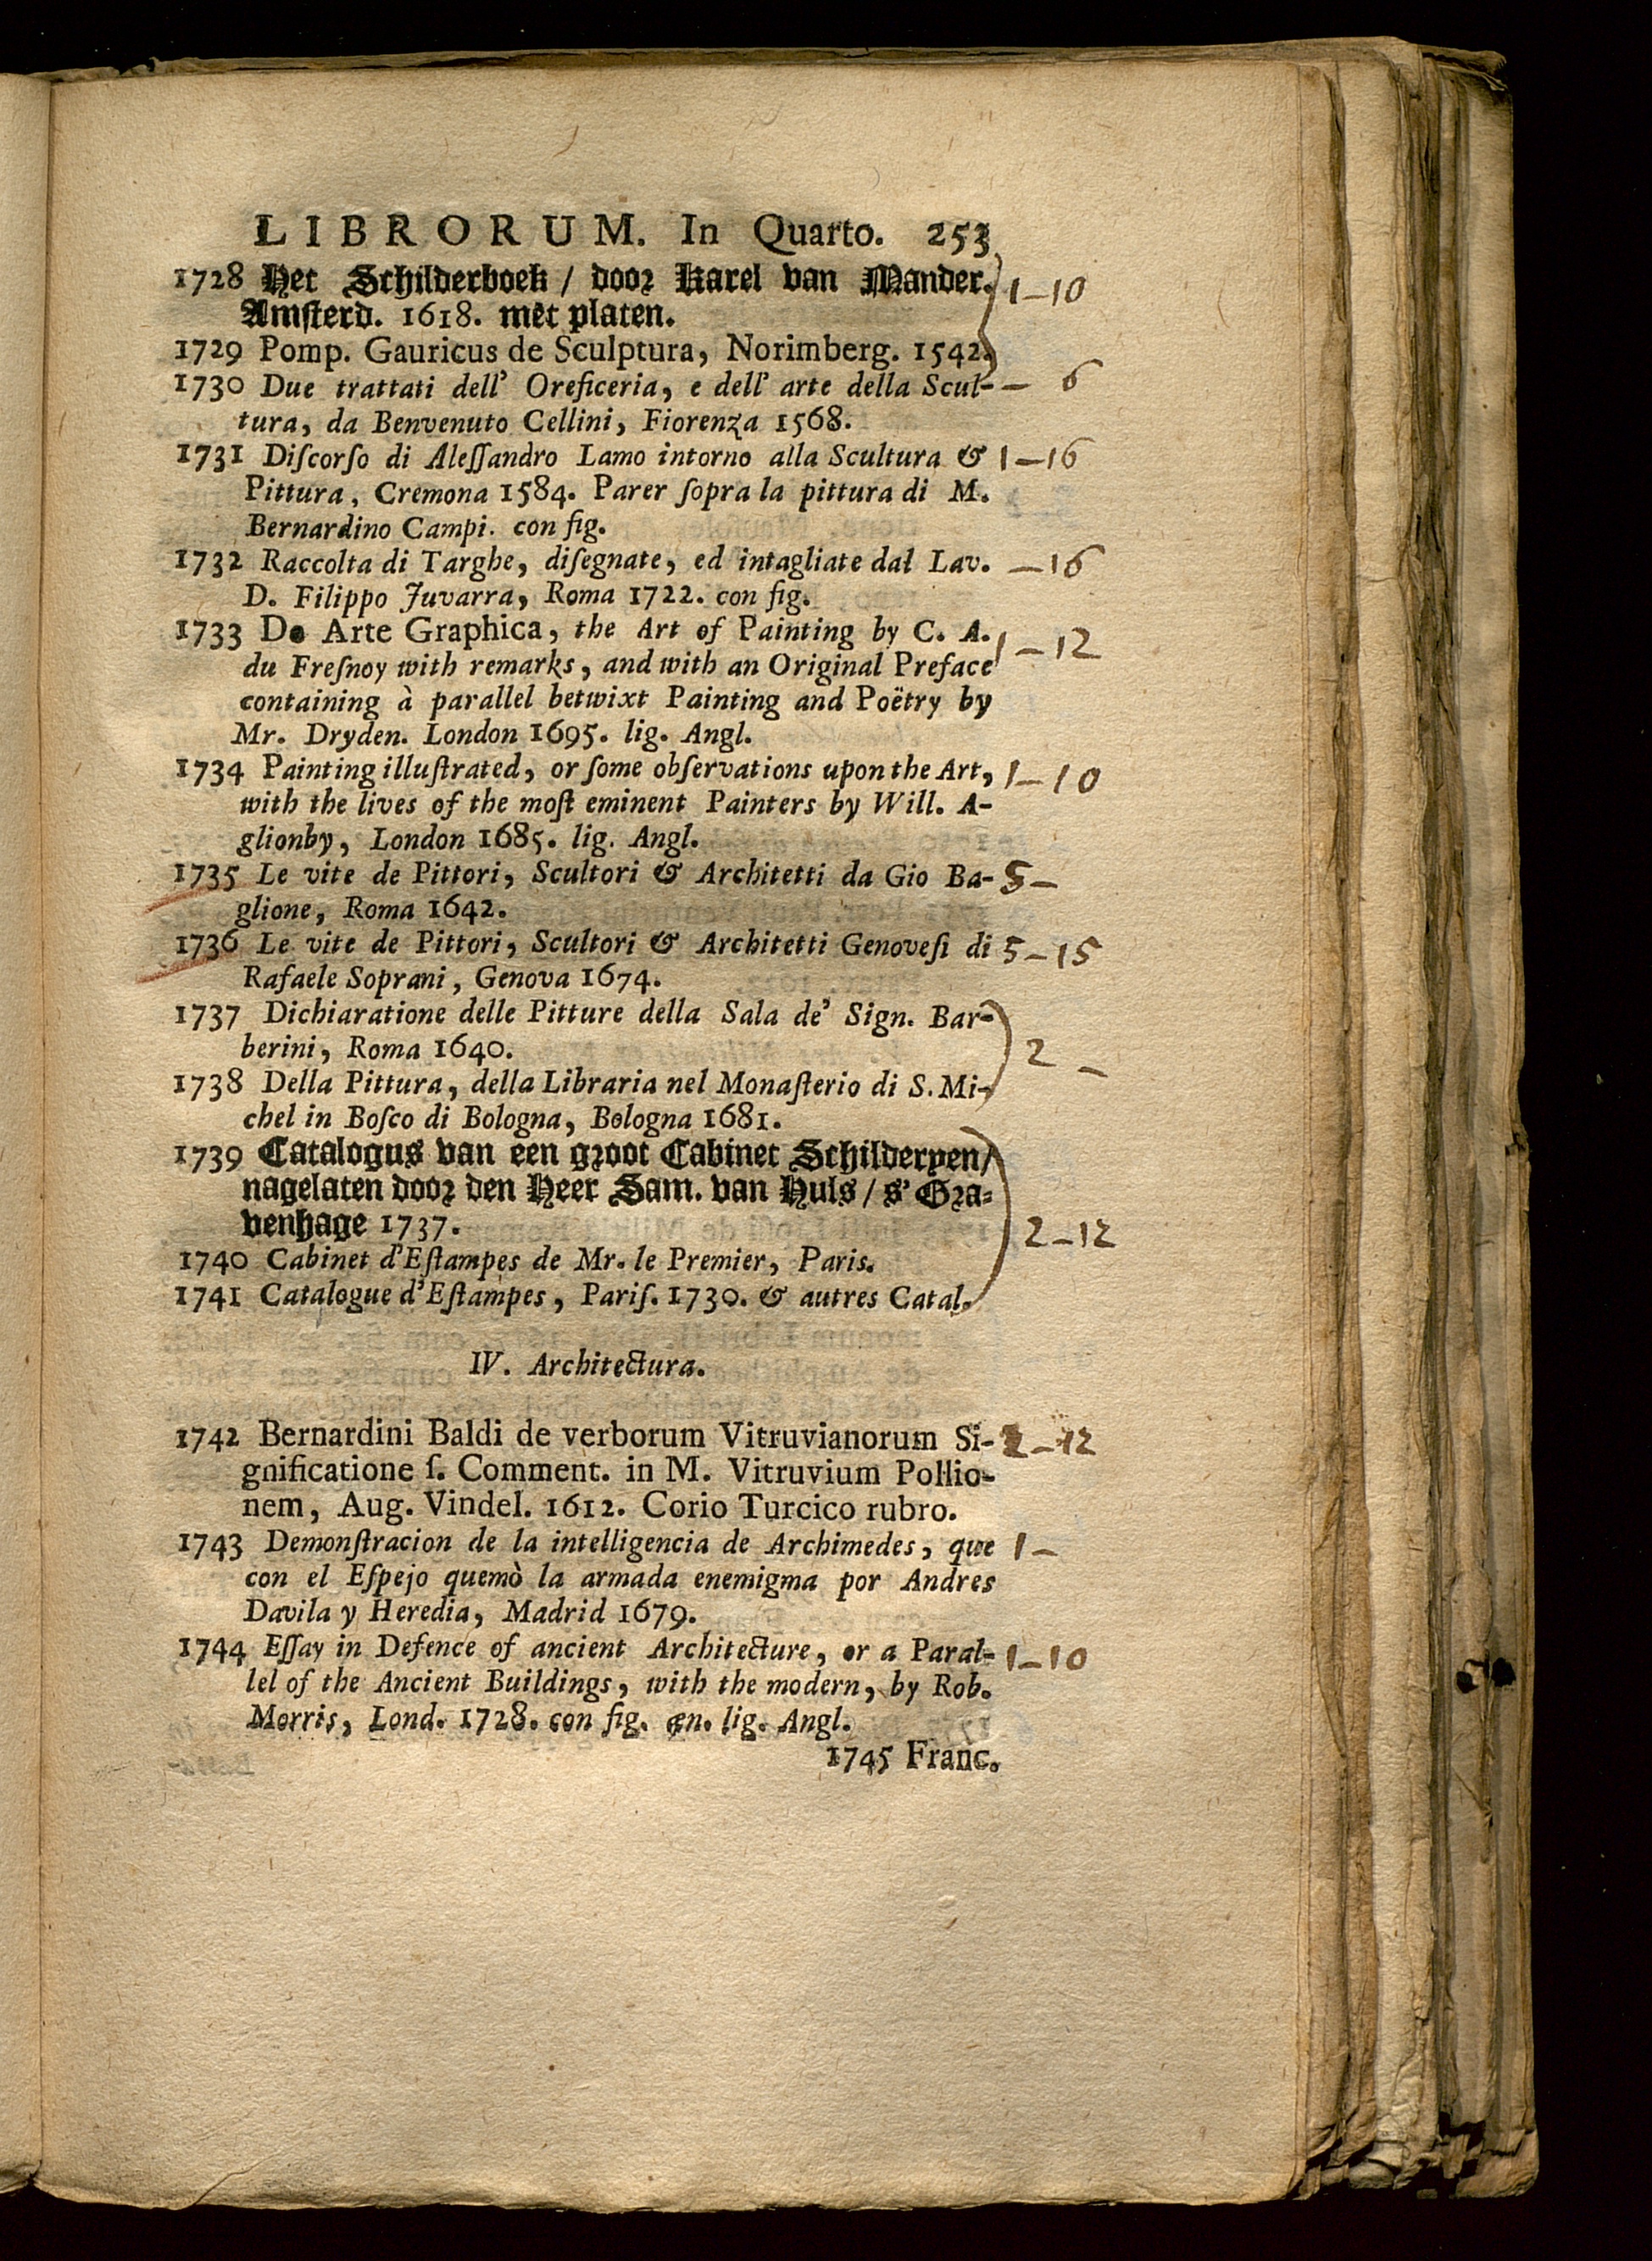 LIBRORUM. In Quarto. 253
1728 Het Schilderboek / door Karel van Mander. 1-10
Amsterd. 1618. met platen.
1729 Pomp. Gauricus de Sculptura, Norimberg. 1542.
1730 Due trattati dell' Oreficeria, e dell' arte della Scul- - 6
tura, da Benvenuto Cellini, Fiorenza 1568.
1731 Diſcorſo di Aleſſandro Lamo intorno alla Scultura & 1-16
Pittura, Cremona 1584. Parer ſopra la pittura di M.
Bernardino Campi. con fig.
1732 Raccolta di Targhe, diſegnate, ed intagliate dal Lav. -16
D. Filippo Juvarra, Roma 1722. con fig.
1733 De Arte Graphica, the Art of Painting by C. A. 1-12
du Freſnoy with remarks, and with an Original Preface
containing à parallel betwixt Painting and Poëtry by
Mr. Dryden. London 1695. lig. Angl.
1734 Painting illuſtrated, or ſome obſervations upon the Art, 1-10
with the lives of the moſt eminent Painters by Will. A-
glionby, London 1685. lig. Angl.
1735 Le vite de Pittori, Scultori & Architetti da Gio Ba- 5-
glione, Roma 1642.
1736 Le vite de Pittori, Scultori & Architetti Genoveſi di 5-15
Rafaele Soprani, Genova 1674.
1737 Dichiaratione delle Pitture della Sala de' Sign. Bar-
berini, Roma 1640. 2 -
1738 Della Pittura, della Libraria nel Monaſterio di S. Mi-
chel in Boſco di Bologna, Bologna 1681.
1739 Catalogus van een groot Cabinet Schilderyen /
nagelaten door den Heer Sam. van Huls / s' Gra-
venhage 1737. 2-12
1740 Cabinet d'Eſtampes de Mr. le Premier, Paris.
1741 Catalogue d'Eſtampes, Pariſ. 1730. & autres Catal.
IV. Architectura.
1742 Bernardini Baldi de verborum Vitruvianorum Si- 2-12
gnificatione ſ. Comment. in M. Vitruvium Pollio-
nem, Aug. Vindel. 1612. Corio Turcico rubro.
1743 Demonſtracion de la intelligencia de Archimedes, que 1-
con el Eſpejo quemò la armada enemigma por Andres
Davila y Heredia, Madrid 1679.
1744 Eſſay in Defence of ancient Architecture, or a Paral- 1-10
lel of the Ancient Buildings, with the modern, by Rob.
Morris, Lond. 1728. con fig. æn. lig. Angl.
1745 Franc.